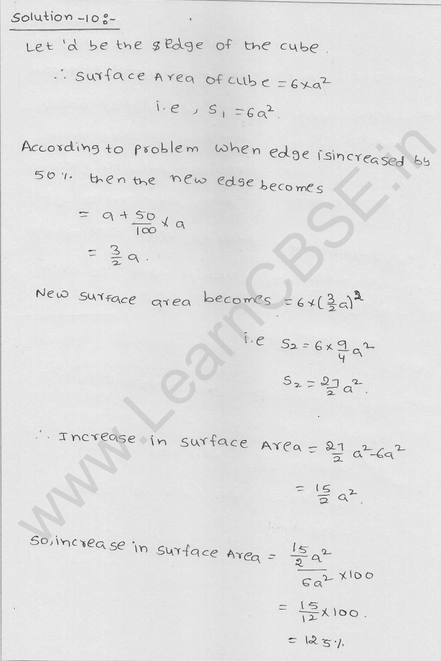 Solution -10:-
Let 'a' be the Edge of the cube.
∴ Surface Area of cube = 6×a²
i.e, S₁ = 6a².
According to problem when edge is increased by
50% then the new edge becomes
= a + 50/100 × a
= 3/2 a.
New surface area becomes = 6×(3/2 a)²
i.e S₂ = 6× 9/4 a²
S₂ = 27/2 a².
∴ Increase in surface Area = 27/2 a² - 6a²
= 15/2 a².
So, increase in surface Area = (15/2 a²)/(6a²) ×100
= 15/12 ×100.
= 125%
www.LearnCBSE.in